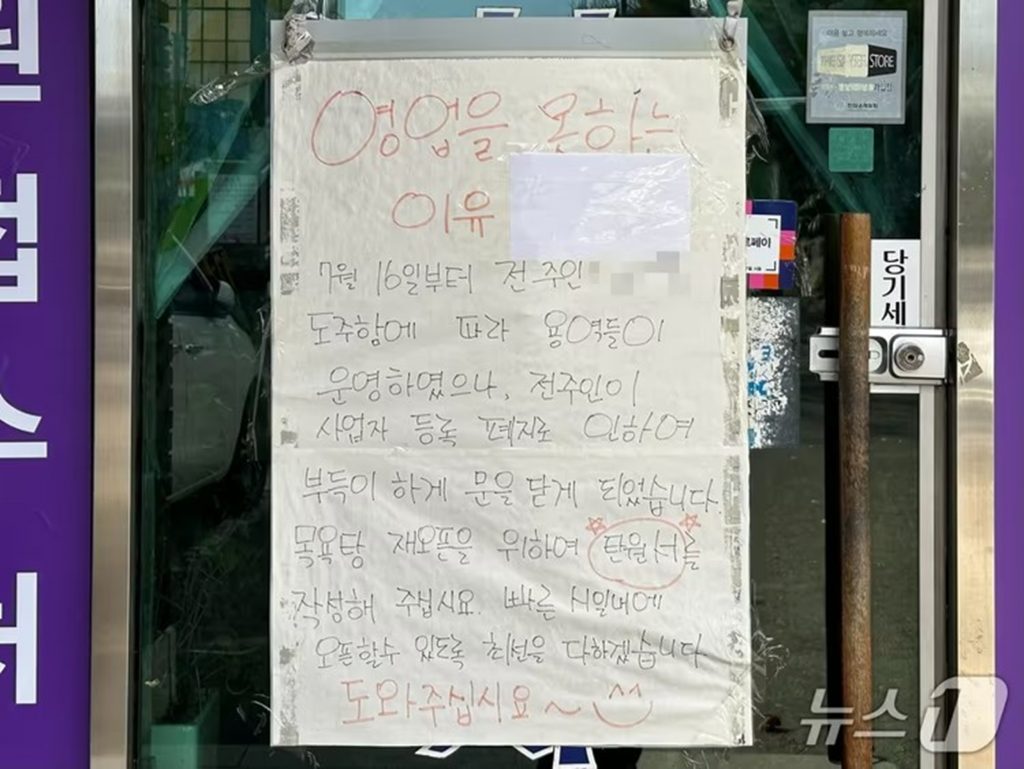 영업을 못하는
이유
7월 16일부터 전주인
도주함에 따라 용역들이
운영하였으나, 전주인이
사업자 등록 폐지로 인하여
부득이 하게 문을 닫게 되었습니다.
목욕탕 재오픈을 위하여 탄원서를
작성해 주십시요. 빠른 시일내에
오픈할수 있도록 최선을 다하겠습니다
도와주십시요~ ^^
STORE
페이
당기세
뉴스1